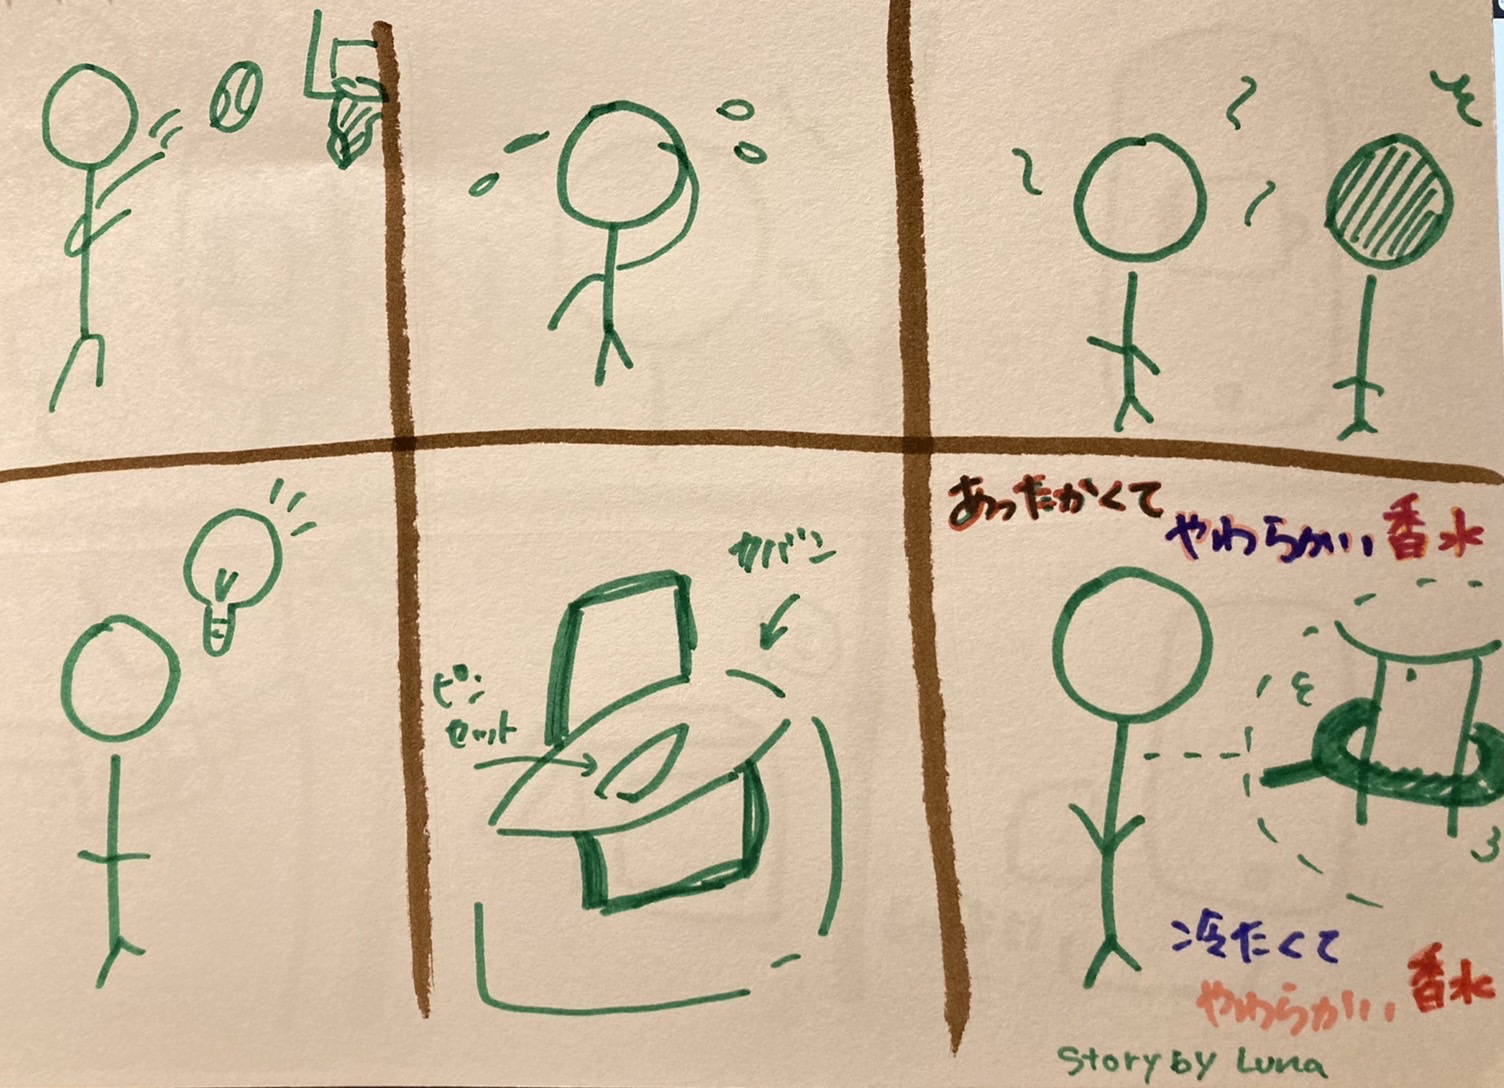 カバン
ピン
セット
あったかくて
やわらかい香水
冷たくて
やわらかい香水
Story by Luna